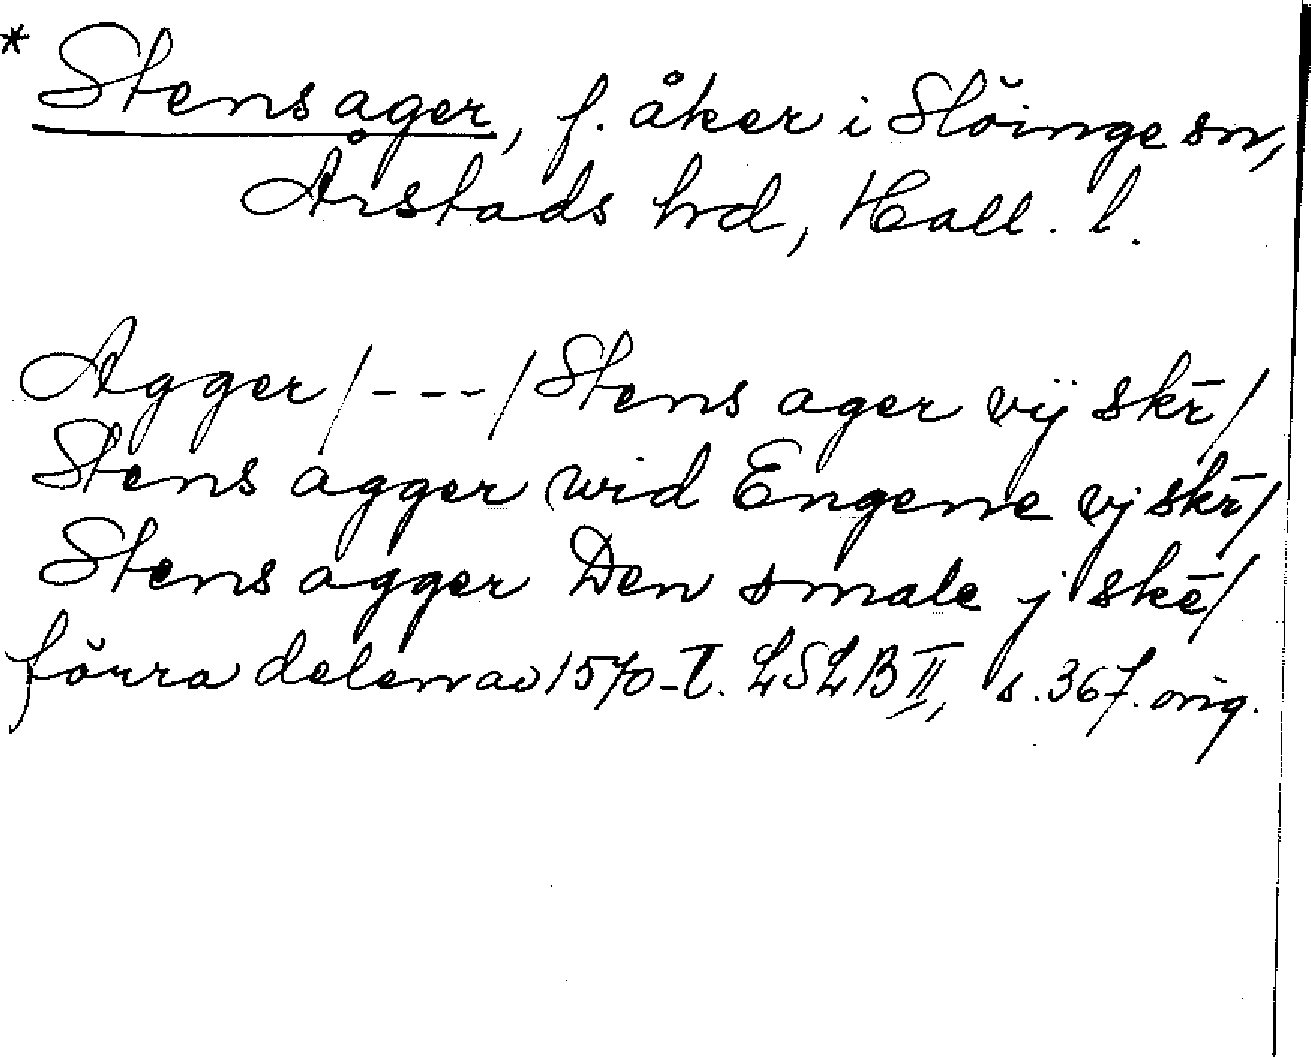 * Stensager, f. åker i Slöinge sn,
Årstads hrd, Hall. l.
Agger /---/ Stens ager vij skr̄/
Stens agger wid Engene vj skr̄/
Stens agger Den smale j skē/
förra delen av 1570-t. LSLB II, s. 367. orig.